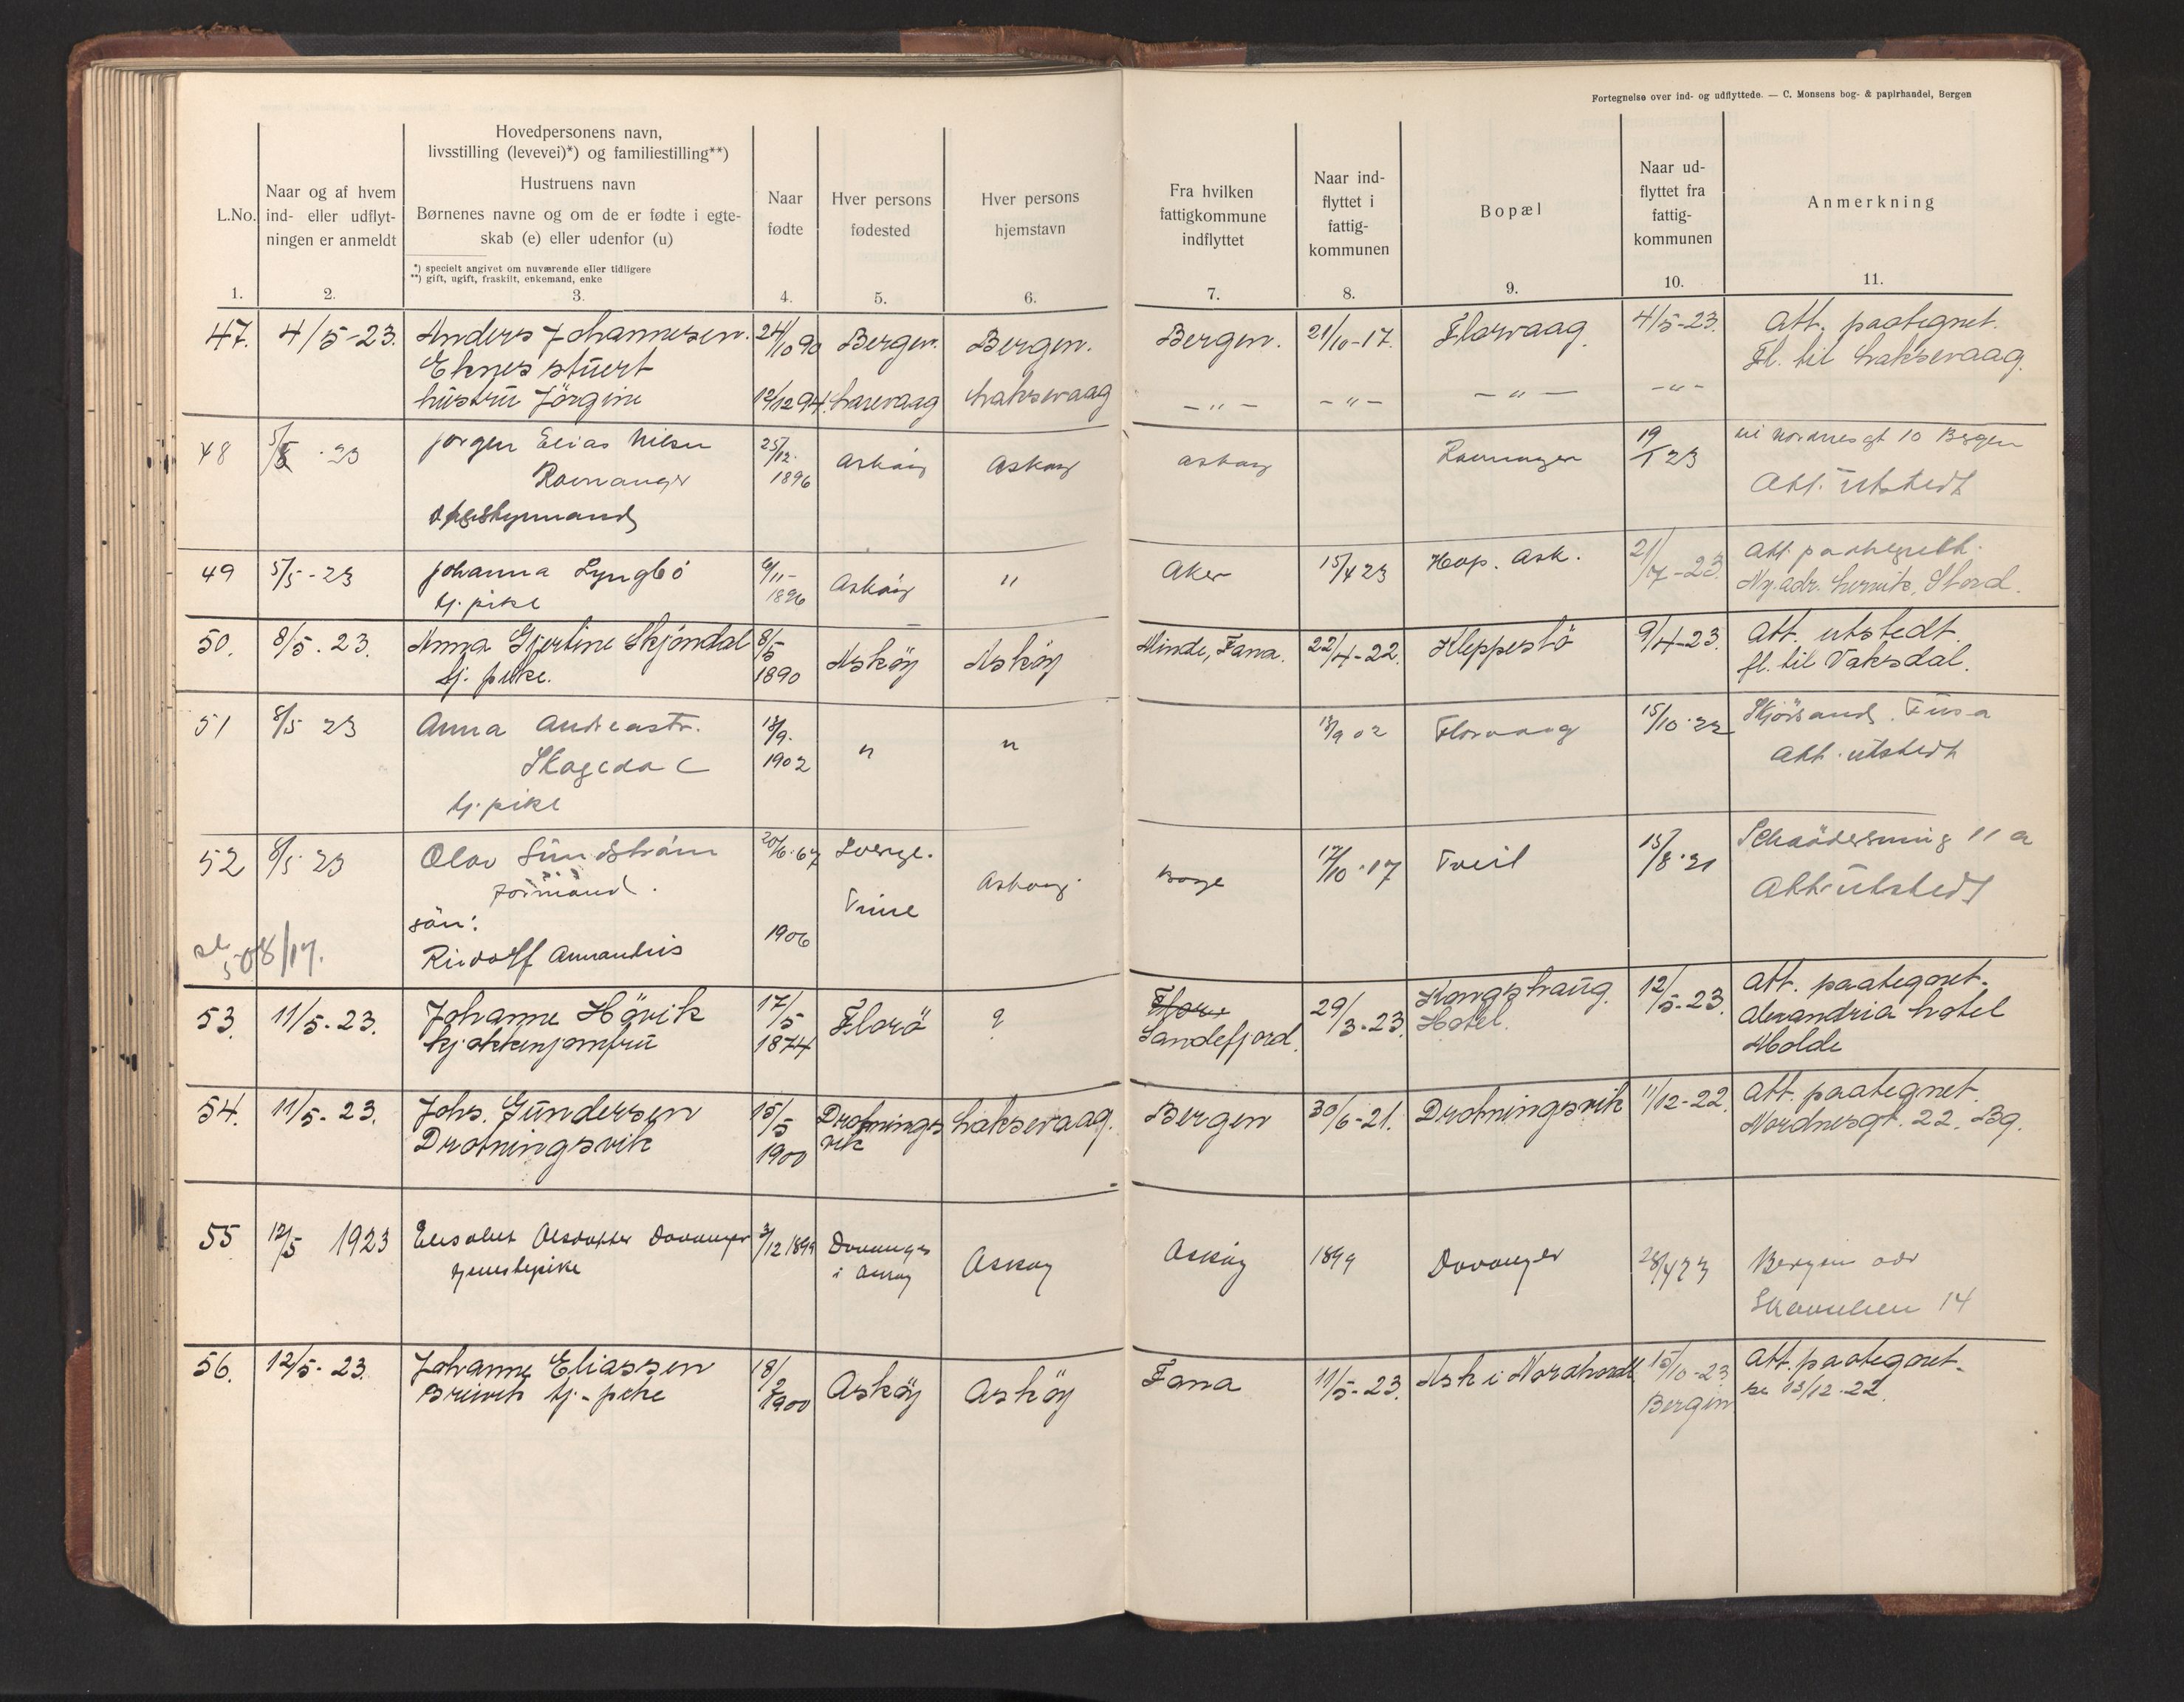 Fortegnelse over ind- og udflyttede. — C. Monsens bog- & papirhandel, Bergen
L.No.
1.
Naar og af hvem
ind- eller udflyt-
ningen er anmeldt
2.
Hovedpersonens navn,
livsstilling (levevei)*) og familiestilling**)
Hustruens navn
Børnenes navne og om de er fødte i egte-
skab (e) eller udenfor (u)
*) specielt angivet om nuværende eller tidligere
**) gift, ugift, fraskilt, enkemand, enke
3.
Naar
fødte
4.
Hver persons
fødested
5.
Hver persons
hjemstavn
6.
Fra hvilken
fattigkommune
indflyttet
7.
Naar ind-
flyttet i
fattig-
kommunen
8.
Bopæl
9.
Naar ud-
flyttet fra
fattig-
kommunen
10.
Anmerkning
11.
47. 4/5-23. Anders Johannesen. 24/10 90 Bergen. Bergen. Bergen. 21/10-17. Florvaag. 4/5-23. Att. paategnet.
Eknes stuert Fl. til Laksevaag.
hustru Jörgine 12/12 94. Laxevaag Laksevaag -"- -"- -"- -"-
48 5/5 - 23 Jörgen Elias Nilsen 25/12. Asköy Asköy Asköy 19/ 23 til Nordnesgt 10 Bergen
Ravnanger 1896 Ravnanger Att. utstedt
49 5/5 - 23 Johanna Lyngbö 6/11- Asköy " Aker 15/4 23 Hop. Ask. 21/7-23. Att. paategnett.
tj. pike 1896 Ny. adr. Stord.
50. 8/5. 23. Anna Gjertine Skjöndal 8/5 Asköy Asköy Minde, Fana. 22/4-22. Kleppestö 9/4-23. Att. utstedt.
tj. pike. 1890 fl. til Vaksdal.
51 8/5 23 Anna Andreastr. 18/9. " " 18/9 02 Florvaag 15/10 22 Skjörsand. Fusa
Skagedal 1902 Att. utstedt
tj. pike
52 8/5 23 Olav Sundström 20/6.67 Sverge. Asköy 17/10.17 Tveit 15/8.21 11 a
Formand. Att. utstedt
sön:
Rudolf 1906
53. 11/5-23. Johanne Hövik 17/5 Florö ? Flor Kongshaug. 12/5-23. Att. paategnet.
kjökkenjomfru 1874 Sandefjord. 29/3-23. Hotel. Alexandria hotel
Molde
54. 11/5-23. Johs. Gundersen 15/5 Drotnings Laksevaag. Bergen 30/6-21. Drotningsvik 11/12-22. Att. paategnet.
Drotningsvik 1900 vik Nordnesgt. 22. Bg.
55 12/5 1923 Elisabet Olsdatter Davanger 3/12 1899 Davanger Asköy Asköy 1899 Davanger 28/4 23 Bergen adr
tjenestepike i Asköy 14
56. 12/5-23. Johanne Eliassen 18/2 Asköy Asköy Fana 11/5-23. Ask i Nordhordl 15/10-23 Att. paategnet.
Breivik tj.-pike 1900 Bergen se 13/12.22.